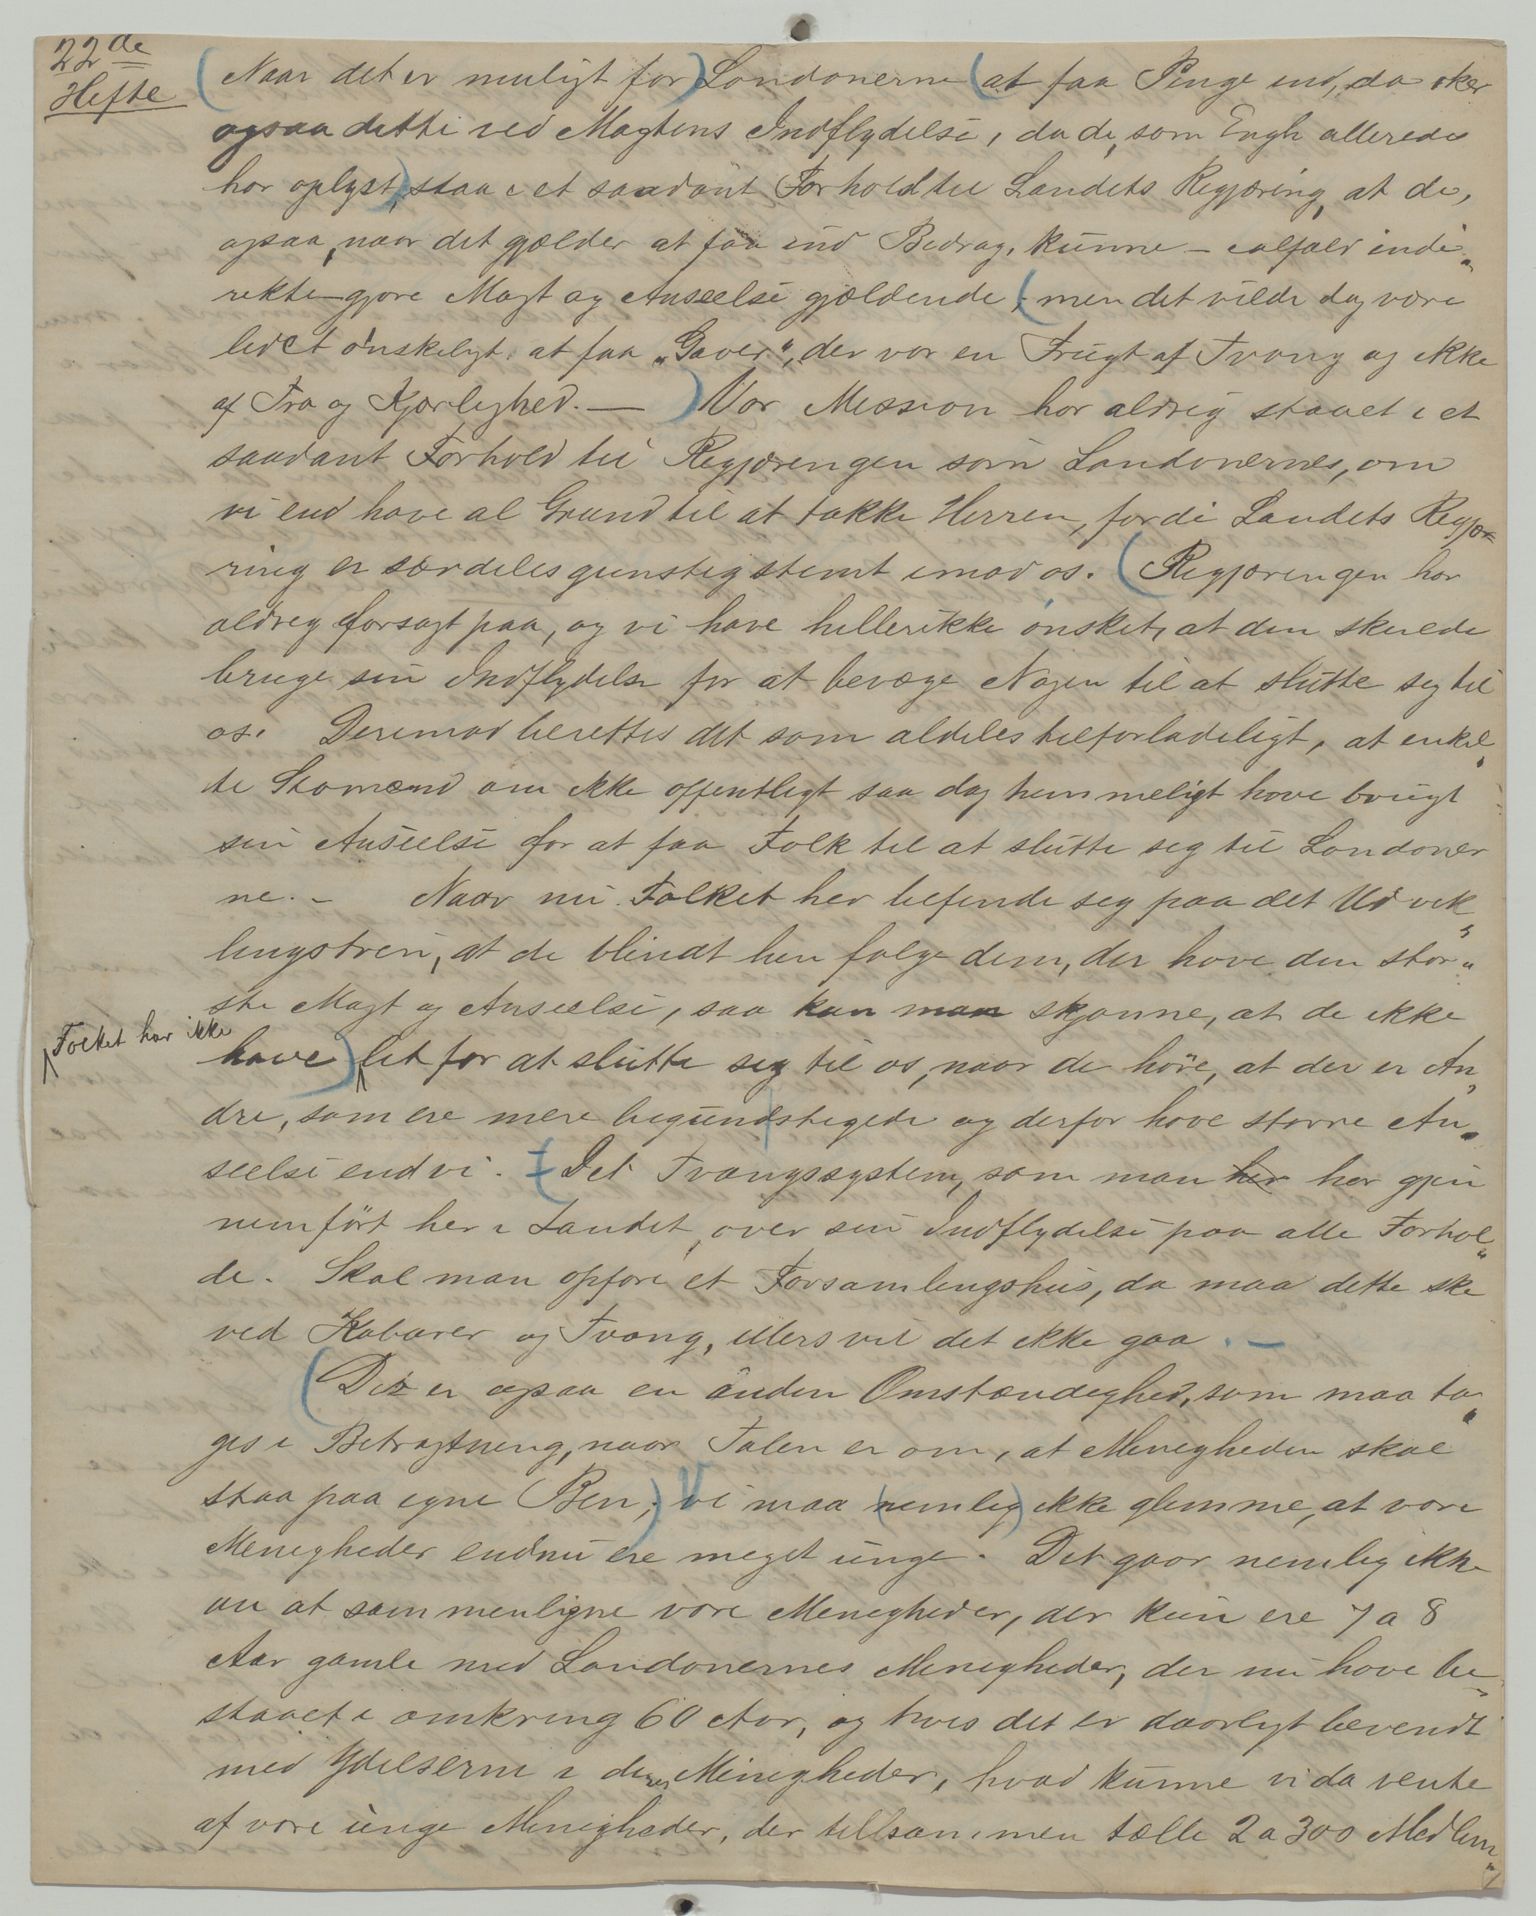 22de
Hefte
(Naar det er muligt for) Londonerne (at faa Penge ind, da sker
ogsaa dette ved Magtens Indflydelse, da de, som Engh allerede
har oplyst), staa i et saadant Forhold til Landets Regjering, at de,
ogsaa, naar det gjælder at faa ind Bidrag, kunne – ialfald indi„
rekte – gjøre Magt og Anseelse gjældende, (men det vilde dog være
lidet ønskeligt at faa „Gaver“, der var en Frugt af Tvang og ikke
af Tro og Kjærlighed. — ) Vor Mission har aldrig staaet i et
saadant Forhold til Regjeringen som Londonernes, om
vi end have al Grund til at takke Herren, fordi Landets Regje
ring er særdeles gunstig stemt imod os. (Regjeringen har
aldrig forsøgt paa, og vi have hellerikke ønsket, at den skulde
bruge sin Indflydelse for at bevæge Nogen til at slutte sig til
os. Derimod berettes det som aldeles tilforladeligt, at enkel„
te Stormænd om ikke offentligt saa dog hemmeligt have brugt
sin Anseelse for at faa Folk til at slutte sig til Londoner
ne. – Naar nu Folket her befinde sig paa det Udvik„
lingstrin, at de blindt hen følge dem, der have den stør„
ste Magt og Anseelse, saa kan man skjønne, at de ikke
Folket har ikke
have) let for at slutte sig til os, naar de høre, at der er An„
dre, som ere mere begunstigede og derfor have større An„
seelse end vi. (Det Tvangssystem, som man her har gjen
nemført her i Landet, øver sin Indflydelse paa alle Forhol„
de. Skal man opføre et Forsamlingshus, da maa dette ske
ved Kabarer og Tvang, ellers vil det ikke gaa. –
(Der er ogsaa en anden Omstændighed, som maa ta„
ges i Betragtning, naar Talen er om, at Menigheden skal
staa paa egne Ben;) Vi maa (nemlig) ikke glemme, at vore
Menigheder endnu ere meget unge. Det gaar nemlig ikke
an at sammenligne vore Menigheder, der kun ere 7 a 8
Aar gamle med Londonernes Menigheder, der nu have be„
staaet i omkring 60 Aar, og hvis det er daarligt bevendt
med Ydelserne i deres Menigheder, hvad kunne vi da vente
af vore unge Menigheder, der tilsammen tælle 2 a 300 Medlem„